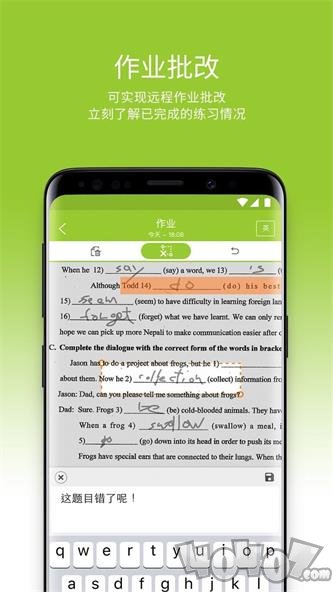 作业批改
可实现远程作业批改
立刻了解已完成的练习情况
作业
今天 - 18:08
英
When he 12) say (say) a word, we 13) 's (
Although Todd 14) do (do) his best
15) seem (seem) to have difficulty in learning foreign lan
16) forget (forget) what we have learnt. We can only rem
hope we can pick up more Nepali to make communication easier after c
C. Complete the dialogue with the correct form of the words in bracke
Jason has to do a project about frogs, but he 1)
about them. Now he 2) collection (collect) information fro
Jason: Dad, can you please tell me something about frogs?
Dad: Sure. Frogs 3) be (be) cold-blooded animals. They hav
When a frog 4) swallow (swallow) a meal, i
5) go (go) down into its head in order to push its mo
Frogs have special ears that are connected to their lungs. When th
这题目错了呢！
q w e r t y u i o p
a s d f g h j k l
40407.com